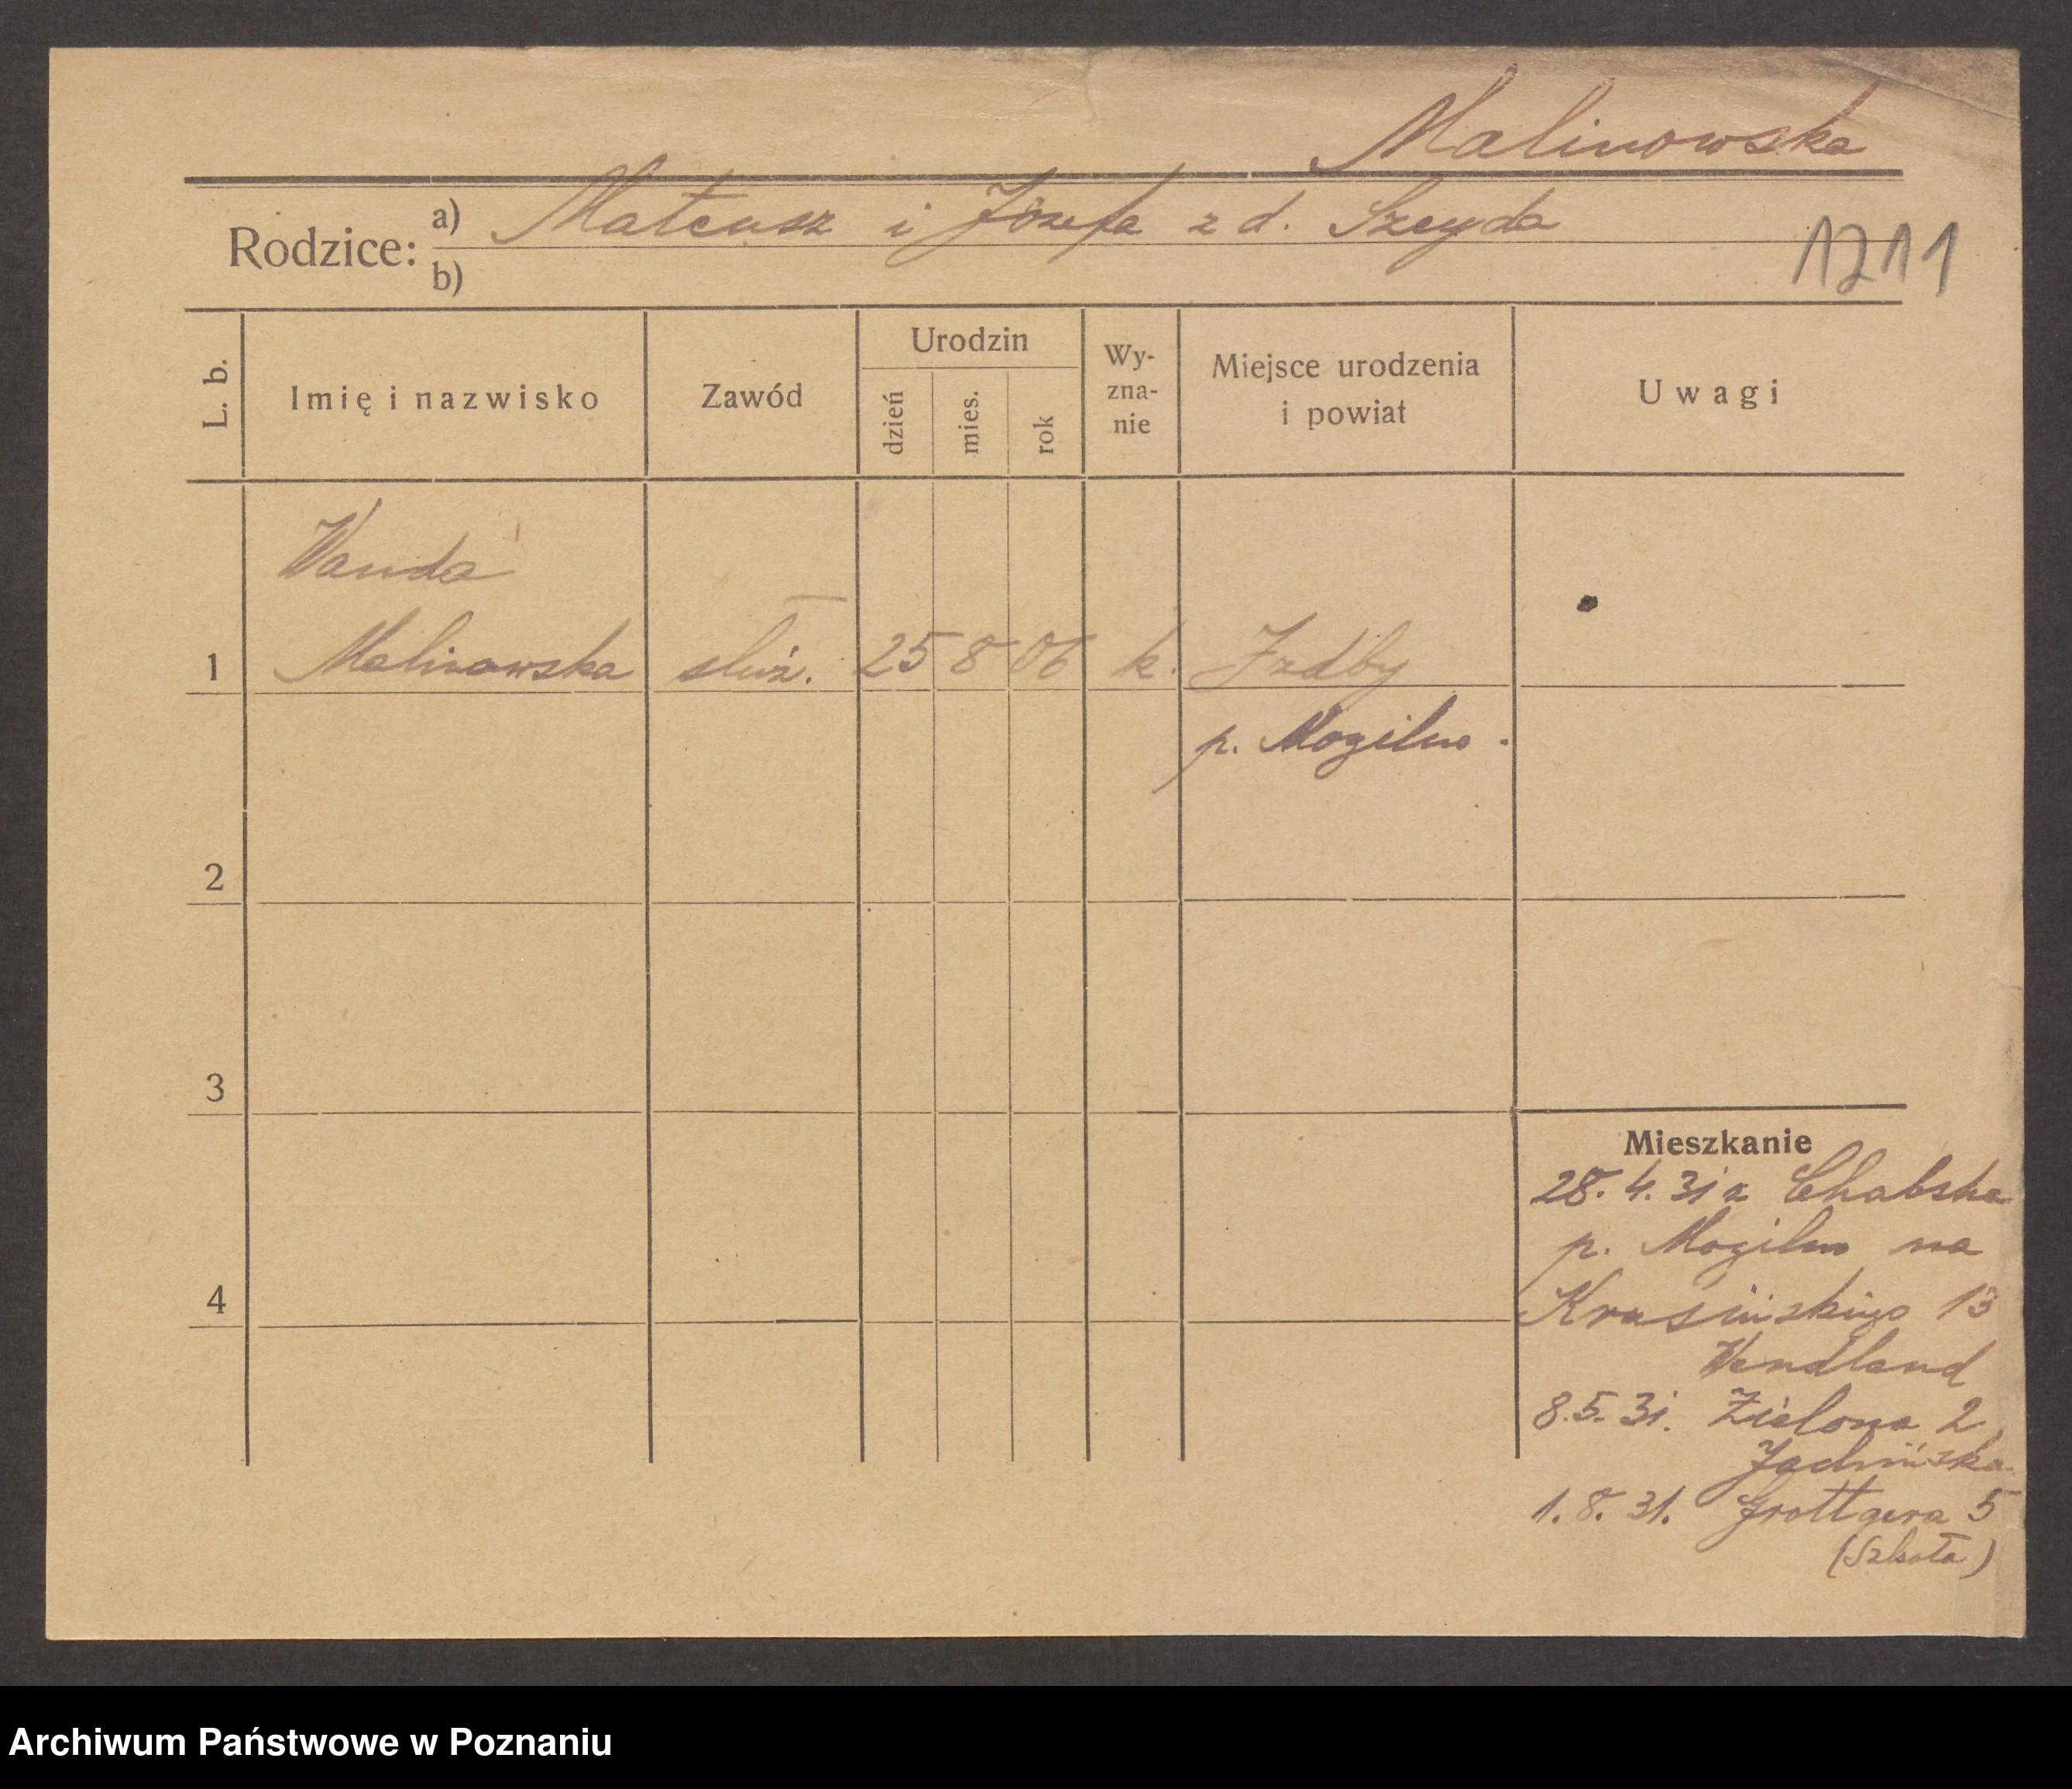 Malinowska
Rodzice: a) Mateusz i Józefa z d. Szeyda
b)
1211
L. b.
Imię i nazwisko
Zawód
Urodzin
dzień
mies.
rok
Wy-
zna-
nie
Miejsce urodzenia
i powiat
Uwagi
Wanda
1 Malinowska służ. 25 8 06 k.
p. Mogilno.
2
3
Mieszkanie
28. 4. 31 z Chabska
p. Mogilno na
4
Krasińskiego 13
Wendland
8. 5. 31. Zielona 2
1. 8. 31. Grottgera 5
(Szkoła)
Archiwum Państwowe w Poznaniu